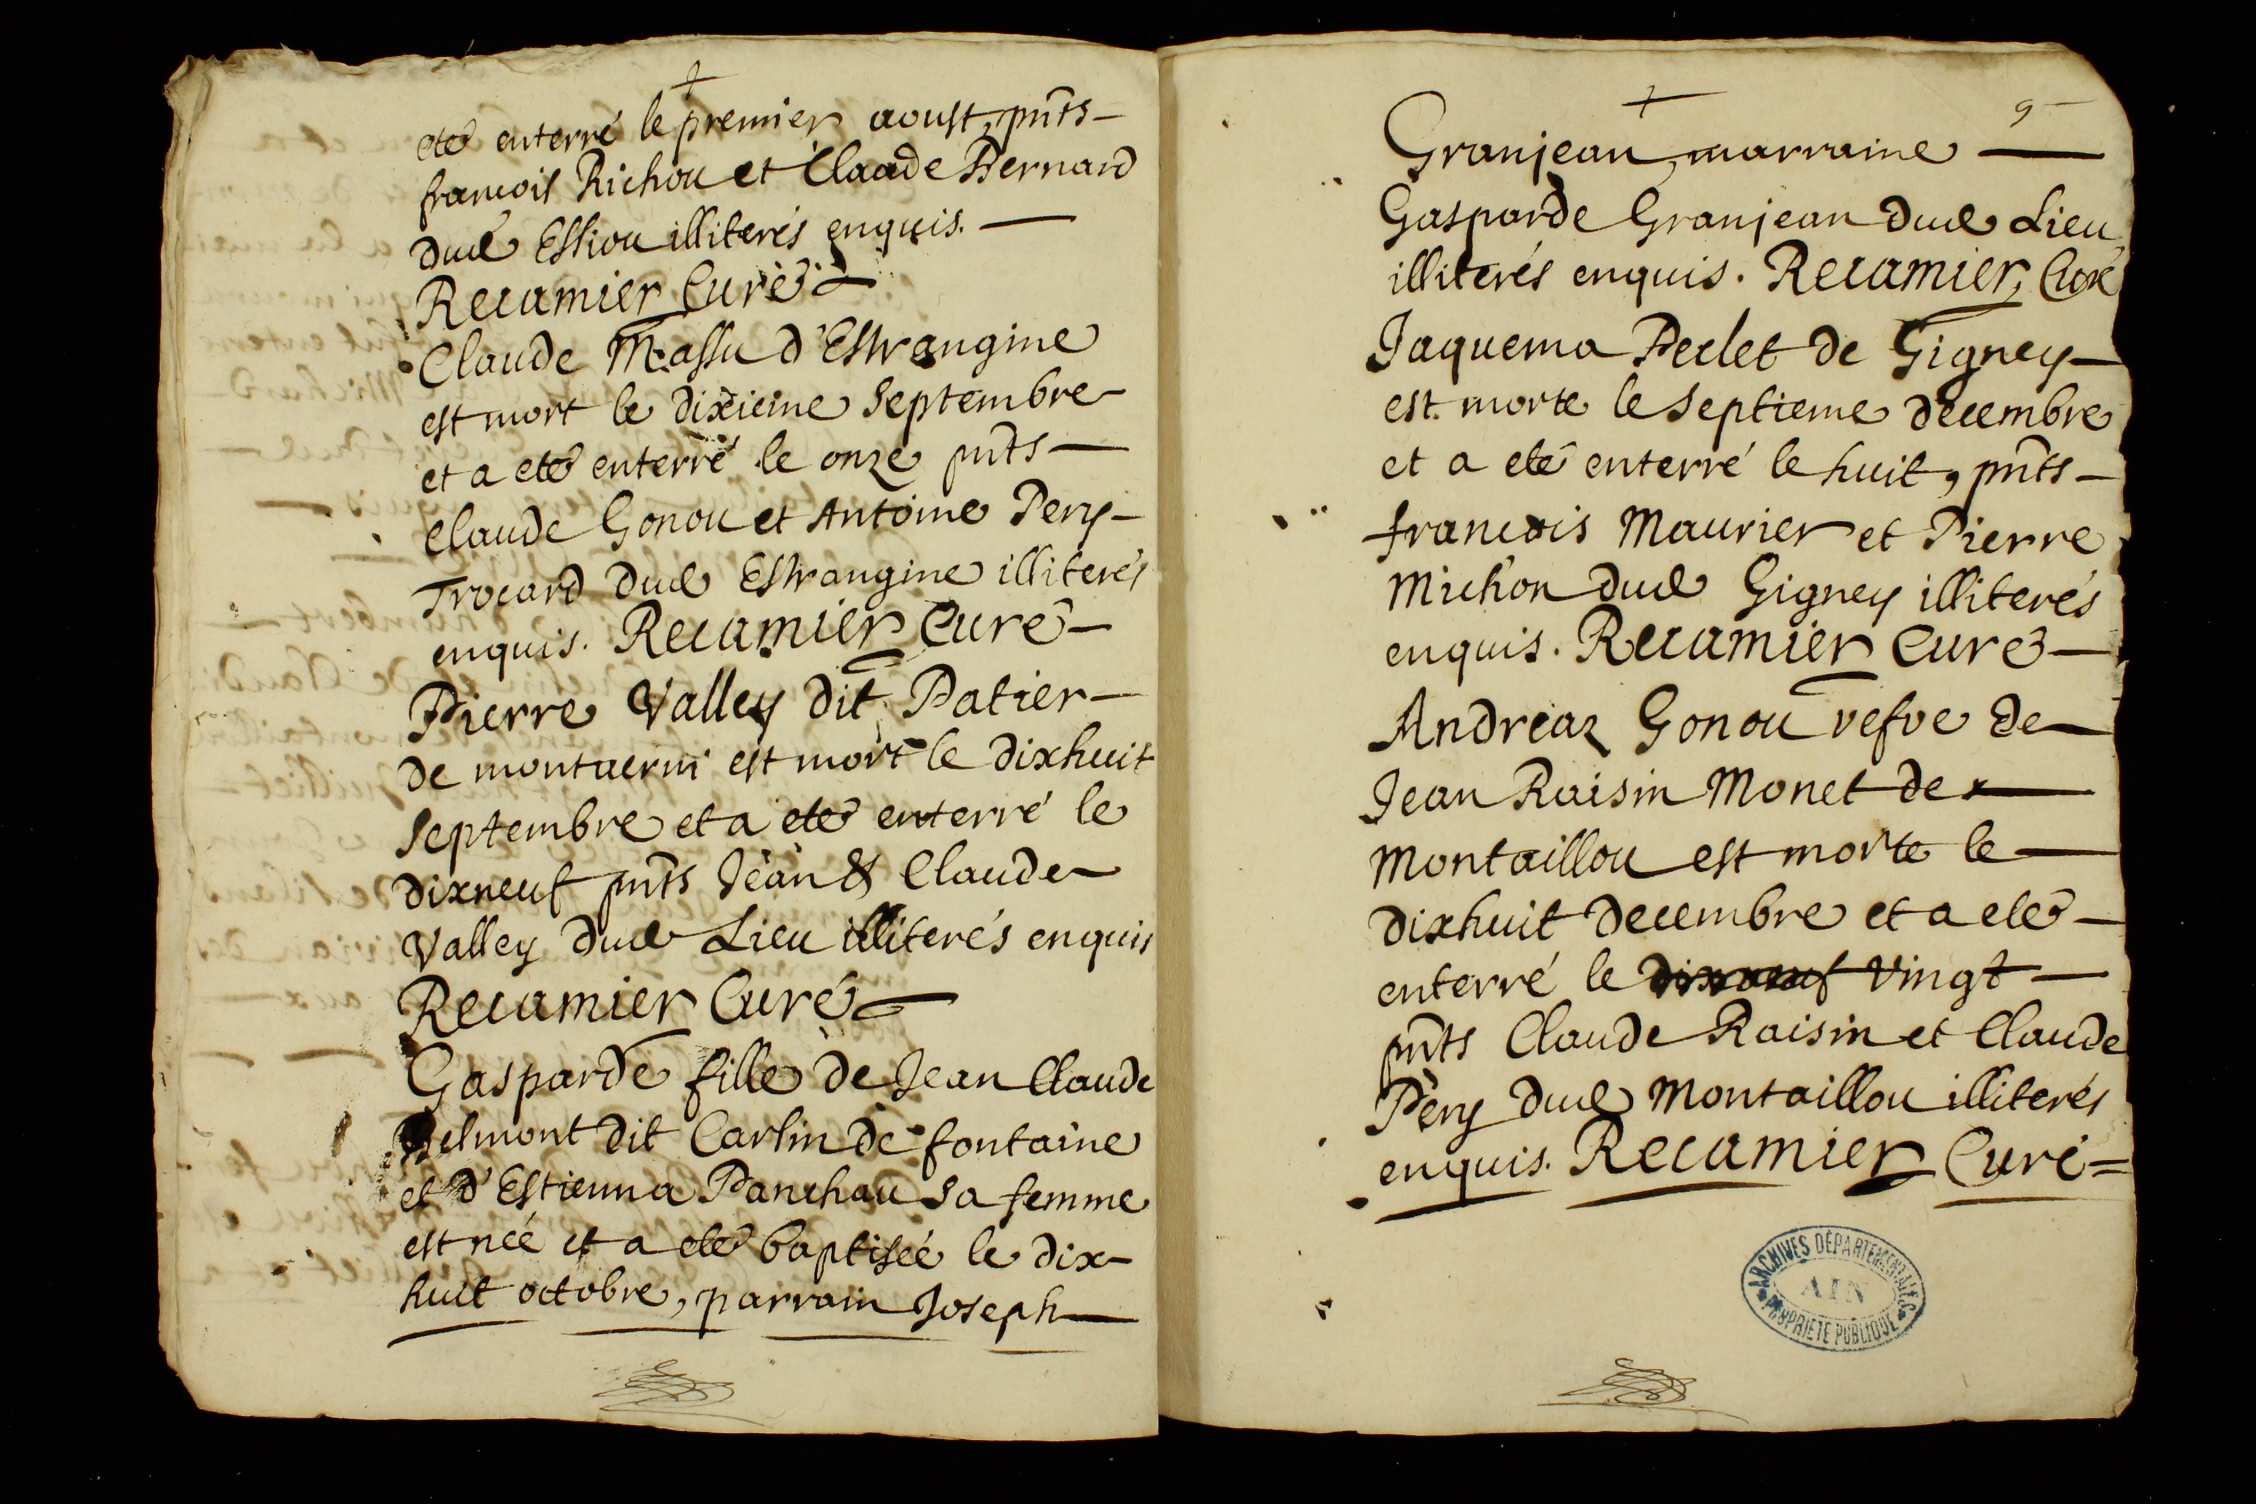 eté enterré le premier aoust, pnts
francois Richou et Claude Bernard
dud Essiou illiterés enquis.
Recamier Curé
Claude Massu d'Estrangine
est mort le dixieme septembre
et a eté enterré le onze pnts
Claude Gonou et Antoine Pery
Trocard dud Estrangine illiterés
enquis. Recamier Curé
Pierre Valley dit Patier
de montverni est mort le dixhuit
septembre et a eté enterré le
dixneuf pnts Jean & Claude
Valley dud Lieu illiterés enquis
Recamier Curé
Gasparde fille de Jean Claude
Belmont dit Carlin de fontaine
et d'Estienna Panchau sa femme
est née et a eté baptisée le dix-
huit octobre, parrain Joseph
9
Granjean, marraine
Gasparde Granjean dud Lieu
illiterés enquis. Recamier, Curé
Jaquema Perlet de Gigney
est morte le septieme decembre
et a eté enterré le huit, pnts
francois Maurier et Pierre
Michon dud Gigney illiterés
enquis. Recamier Curé
Andreaz Gonou vefve de
Jean Raisin Monet de
Montaillou est morte le
dixhuit decembre et a eté
enterré le dixneuf vingt
pnts Claude Raisin et Claude
Pery dud Montaillou illiterés
enquis. Recamier Curé
ARCHIVES DÉPARTEMENTALES
AIN
PROPRIÉTÉ PUBLIQUE